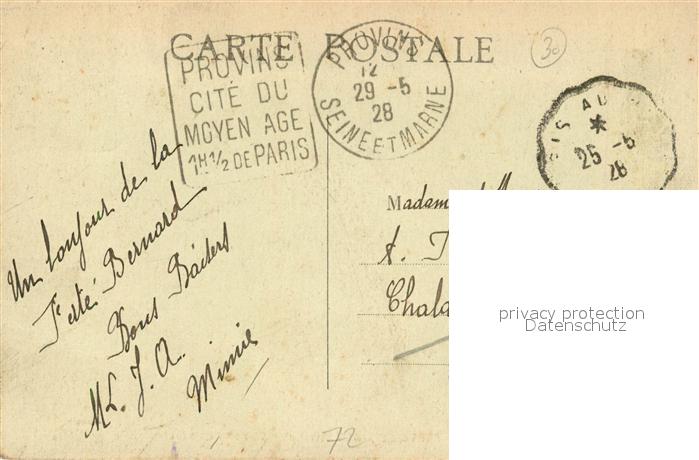 CARTE POSTALE
PROVINS
CITÉ DU
MOYEN AGE
1H ½ DE PARIS
PROVINS
12
29 -5
28
SEINE ET MARNE
30
AU
25 -5
28
Un bonjour de la
Ferté Bernard
Bons Baisers
ML. J. A.
Mimie
Madam
A.
Chala
privacy protection
Datenschutz
72